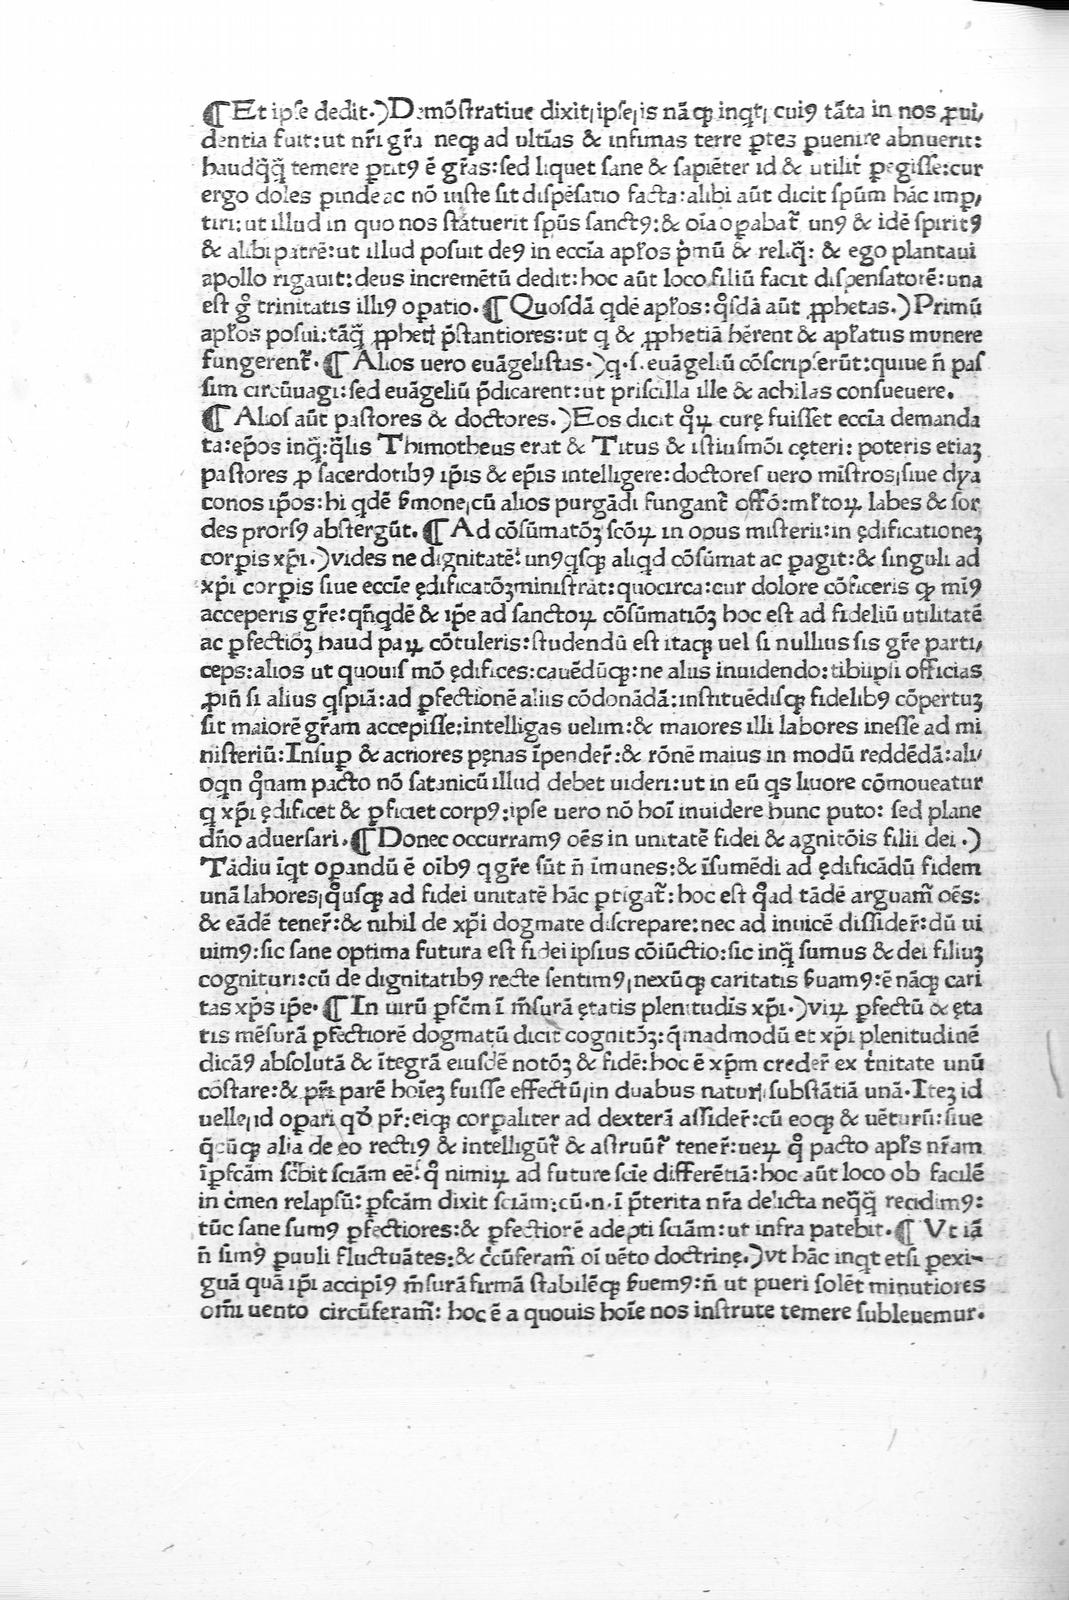 ¶ Et ipse dedit.) Demõstratiue dixit, ipse, is nãꝙ inqt, cuiꝰ tãta in nos ꝓui,
dentia fuit: ut nr̃i gr̃a neqꝫ ad ultĩas & infimas terre ꝑtez ꝑuenire abnuerit:
haudq̃q̃ temere ꝑtitꝰ ẽ gr̃as: sed liquet sane & sapiẽter id & utilit̃ ꝑegisse: cur
ergo doles ꝑinde ac nõ iuste sit dispẽsatio facta: alibi aũt dicit spũm hãc imp,
tiri: ut illud in quo nos statuerit spũs sanctꝰ: & oĩa oꝑabat̃ unꝰ & idẽ spiritꝰ
& alibi patrẽ: ut illud posuit deꝰ in eccĩa apl̃os p̃mũ & reliq̃: & ego plantaui
apollo rigauit: deus incremẽtũ dedit: hoc aũt loco filiũ facit dispensatorẽ: una
est g̃ trinitatis illiꝰ oꝑatio. ¶ Quosdã qdẽ apl̃os: q̃sdã aũt ꝓphetas.) Primũ
apl̃os posui: tãq̃ ꝓphetꝭ p̃stantiores: ut q & ꝓphetiã hẽrent & apl̃atus munere
fungerent̃. ¶ Alios uero euãgelistas.) q. s. euãgeliũ cõscripserũt: quiue ñ pas
sim circũuagi: sed euãgeliũ p̃dicarent: ut priscilla ille & achilas consueuere.
¶ Alios aũt pastores & doctores.) Eos dicit q̃ꝝ curę fuisset eccĩa demanda
ta: ep̃os inq̃: q̃lis Thimotheus erat & Titus & istiusmõi cęteri: poteris etiaꝫ
pastores ꝓ sacerdotibꝰ ip̃is & ep̃is intelligere: doctores uero mĩstros, siue dya
conos ip̃os: hi qdẽ ẜmone, cũ alios purgãdi fungant̃ offõ: ml̃toꝝ labes & sor
des prorsꝰ abstergũt. ¶ Ad cõsũmatõꝫ scõꝝ in opus misterii: in ędificationeꝫ
corpis xp̃i.) vides ne dignitatẽ: unꝰqsqꝫ aliqd cõsũmat ac ꝑagit: & singuli ad
xp̃i corpis siue eccĩe ędificatõꝫ ministrãt: quocirca: cur dolore cõficeris ꝙ miꝰ
acceperis gr̃e: qñqdẽ & ip̃e ad sanctoꝝ cõsũmatiõꝫ hoc est ad fideliũ utilitatẽ
ac ꝑfectiõꝫ haud paꝝ cõtuleris: studendũ est itaqꝫ uel si nullius sis gr̃e parti,
ceps: alios ut quouis mõ ędifices: cauẽdũqꝫ: ne aliis inuidendo: tibi ipsi officias
ꝓin̄ si alius qspiã: ad ꝑfectionẽ aliis cõdonãdã: instituẽdisqꝫ fidelibꝰ cõpertuꝫ
sit maiorẽ gr̃am accepisse: intelligas uelim: & maiores illi labores inesse ad mi
nisteriũ: Insuꝑ & acriores pęnas ĩpender̃: & rõnẽ maius in modũ reddẽdã: ali,
oqn q̃nam pacto nõ satanicũ illud debet uideri: ut in eũ qs liuore cõmoueatur
q xp̃i ędificet & ꝑficiet corpꝰ: ipse uero nõ hoĩ inuidere hunc puto: sed plane
dño aduersari. ¶ Donec occurramꝰ oẽs in unitatẽ fidei & agnitõis filii dei.)
Tãdiu ĩqt oꝑandũ ẽ oĩbꝰ q gr̃e sũt ñ ĩmunes: & ĩsumẽdi ad ędificãdũ fidem
unã labores, q̃usqꝫ ad fidei unitatẽ hãc ꝑtigat̃: hoc est q̃ad tãdẽ arguam̃ oẽs:
& eãdẽ tener̃: & nihil de xp̃i dogmate discrepare: nec ad inuicẽ dissider̃: dũ ui
uimꝰ: sic sane optima futura est fidei ipsius cõiũctio: sic inq̃ sumus & dei filiuꝫ
cognituri: cũ de dignitatibꝰ recte sentimꝰ, nexũqꝫ caritatis ẜuamꝰ: ẽ nãqꝫ cari
tas xp̃s ip̃e. ¶ In uirũ ꝑfcm̃ ĩ m̃surã ętatis plenitudĩs xp̃i.) viꝝ ꝑfectũ & ęta
tis mẽsurã ꝑfectiorẽ dogmatũ dicit cognitõꝫ: q̃madmodũ et xp̃i plenitudinẽ
dicãꝰ absolutã & ĩtegrã eiusdẽ notõꝫ & fidẽ: hoc ẽ xp̃m creder̃ ex t̃nitate unũ
cõstare: & parẽ hoĩeꝫ fuisse effectũ, in duabus naturꝭ, substãtiã unã. Iteꝫ id
uelle, id oꝑari qđ pr̃: eiqꝫ corpaliter ad dexterã assider̃: cũ eoqꝫ & uẽturũ: siue
q̃cũqꝫ alia de eo rectiꝰ & intelligũt̃ & astruũt̃ tener̃: ueꝝ q̃ pacto apl̃s nr̃am
ĩꝑfcãm scb̃it sciãm eẽ: q̃ nimiꝝ ad future scĩe differẽtiã: hoc aũt loco ob facilẽ
in c̃men relapsũ: ꝑfcãm dixit sciãm: cũ. n. ĩ p̃terita nr̃a delicta neq̃q̃ recidimꝰ:
tũc sane sumꝰ ꝑfectiores: & ꝑfectiorẽ adepti sciãm: ut infra patebit. ¶ Vt iã
ñ simꝰ ꝑuuli fluctuãtes: & c̃cũferam̃ oĩ uẽto doctrinę.) vt hãc inqt etsi ꝑexi-
guã quã ip̃i accipĩꝰ m̃surã firmã stabilẽqꝫ ẜuemꝰ: ñ ut pueri solẽt minutiores
om̃i uento circũferam̃: hoc ẽ a quouis hoĩe nos instrute temere subleuemur.